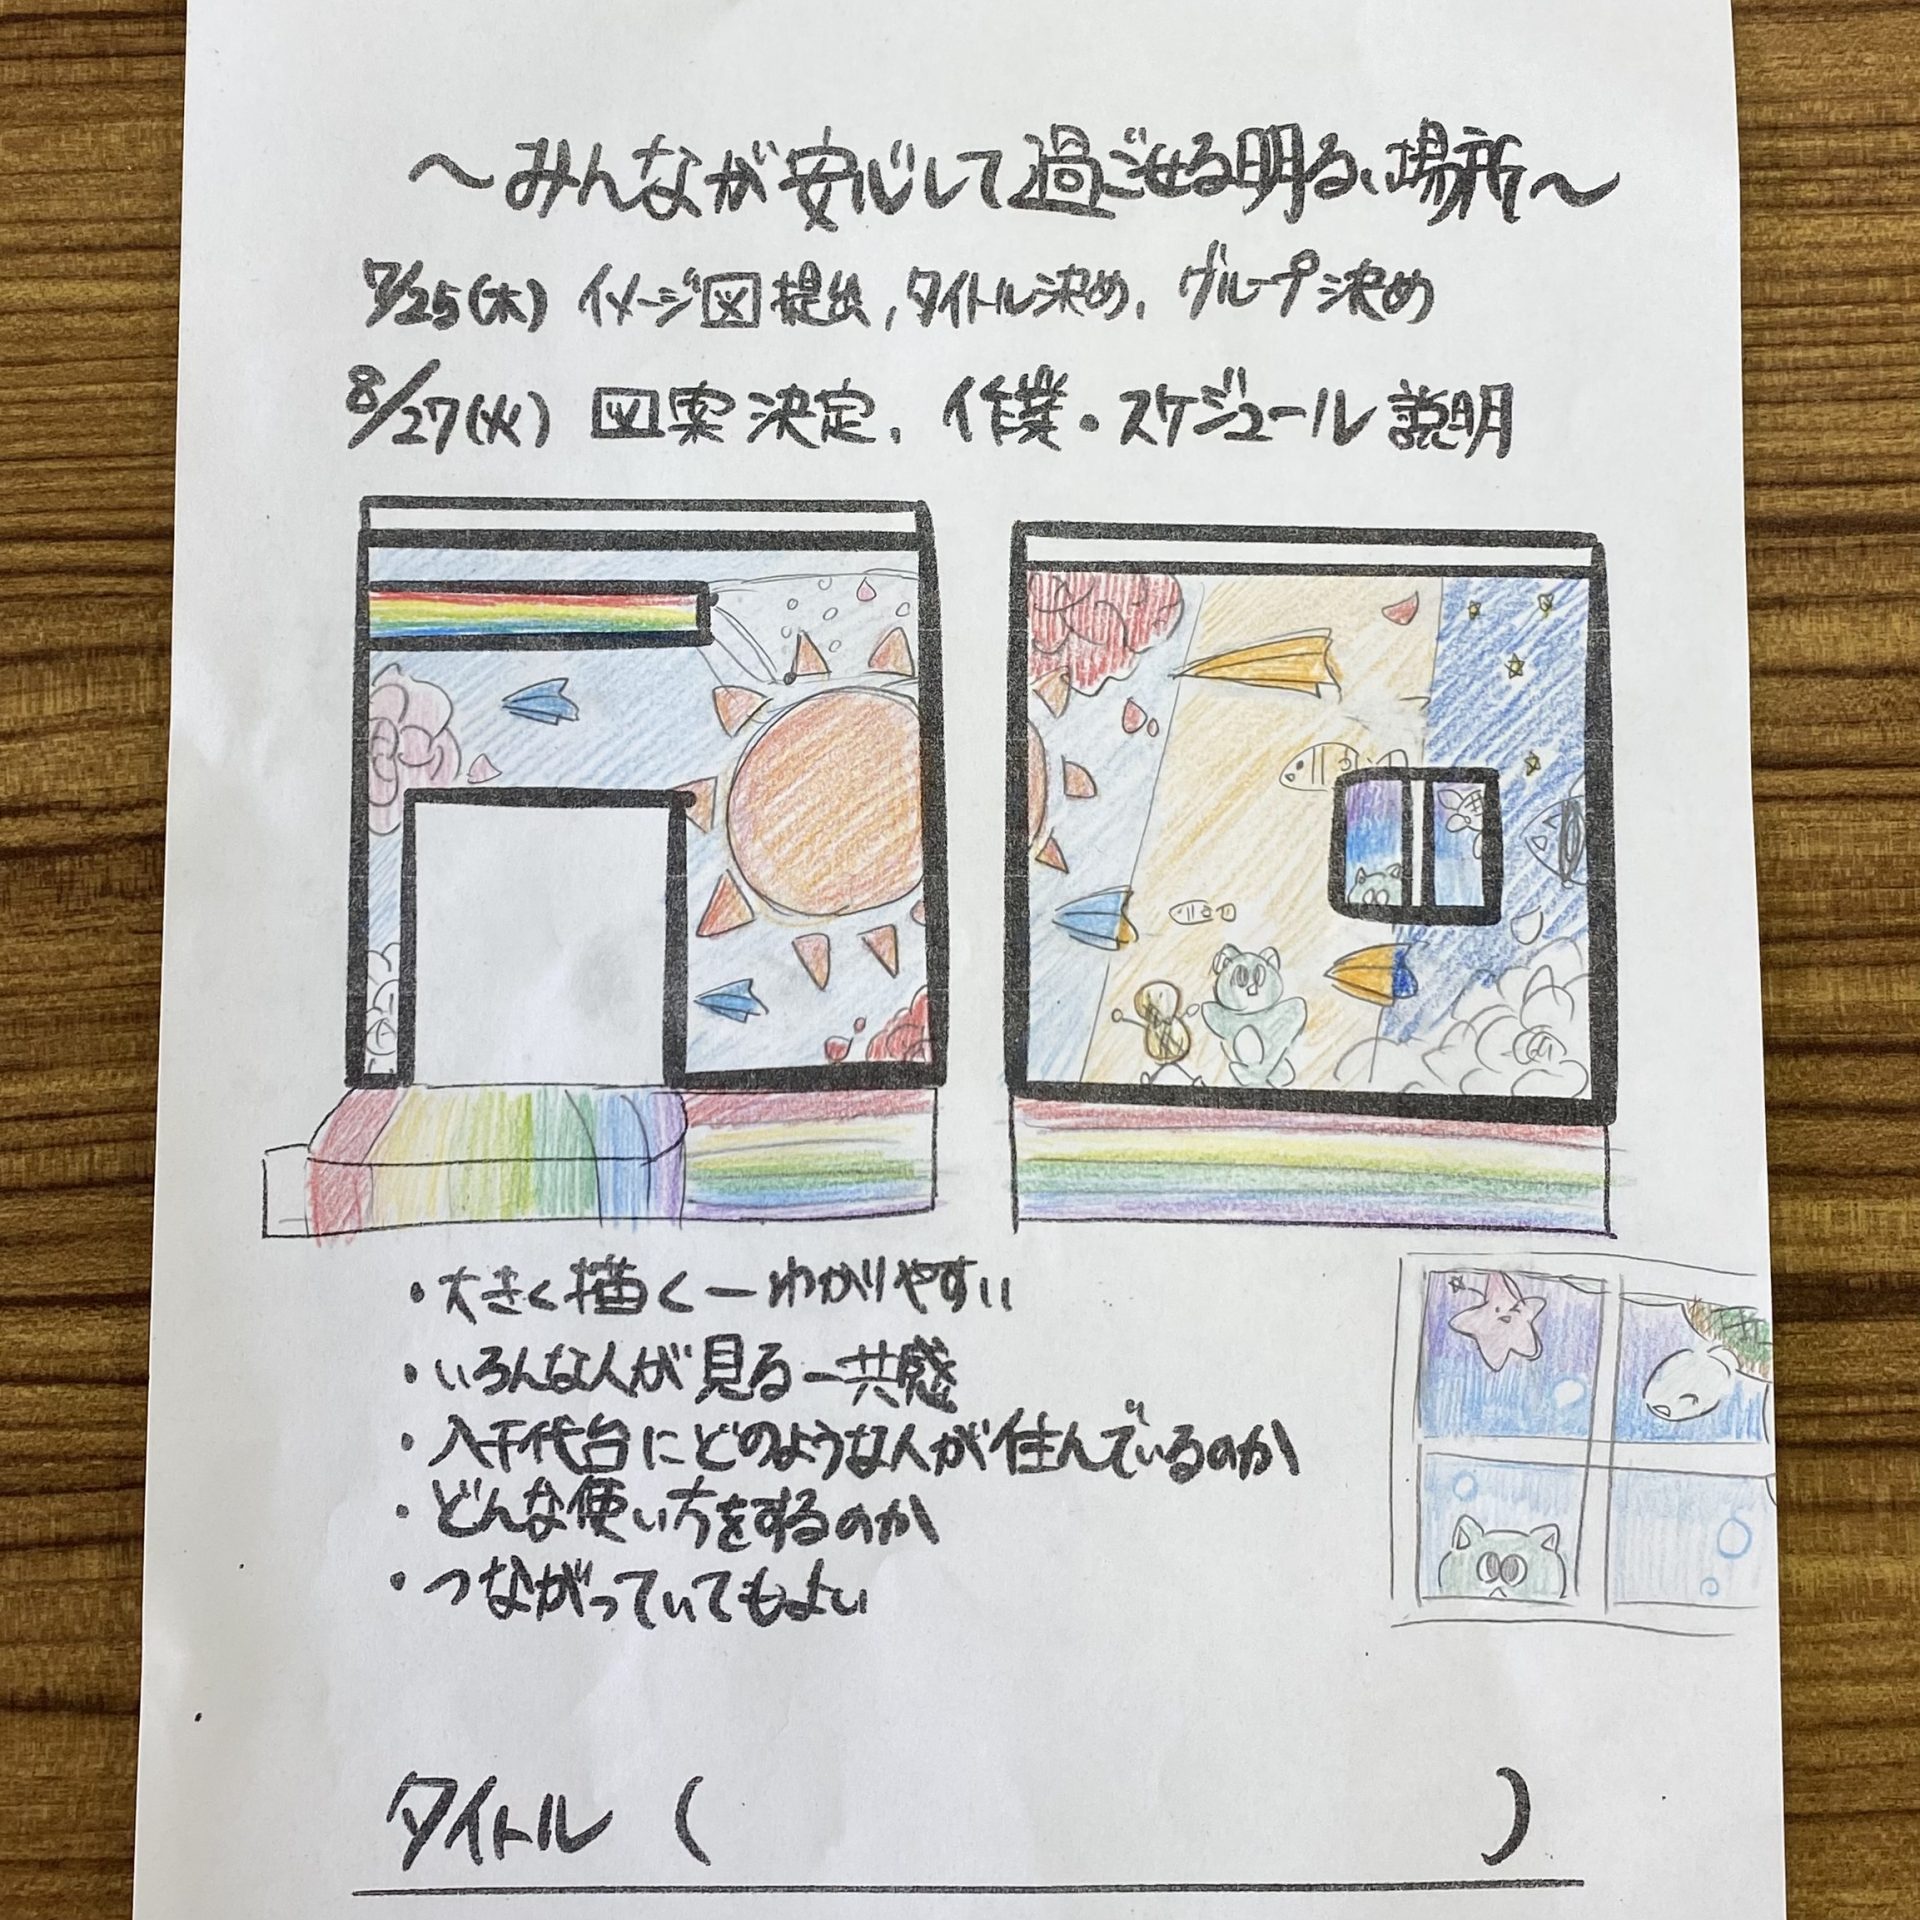 ～みんなが安心して過ごせる明るい場所～
7/25(木) イメージ図提出,タイトル決め,グループ決め
8/27(火) 図案決定,作業・スケジュール説明
・大きく描くーわかりやすい
・いろんな人が見るー共感
・八千代台にどのような人が住んでいるのか
・どんな使い方をするのか
・つながっていてもよい
タイトル ( )